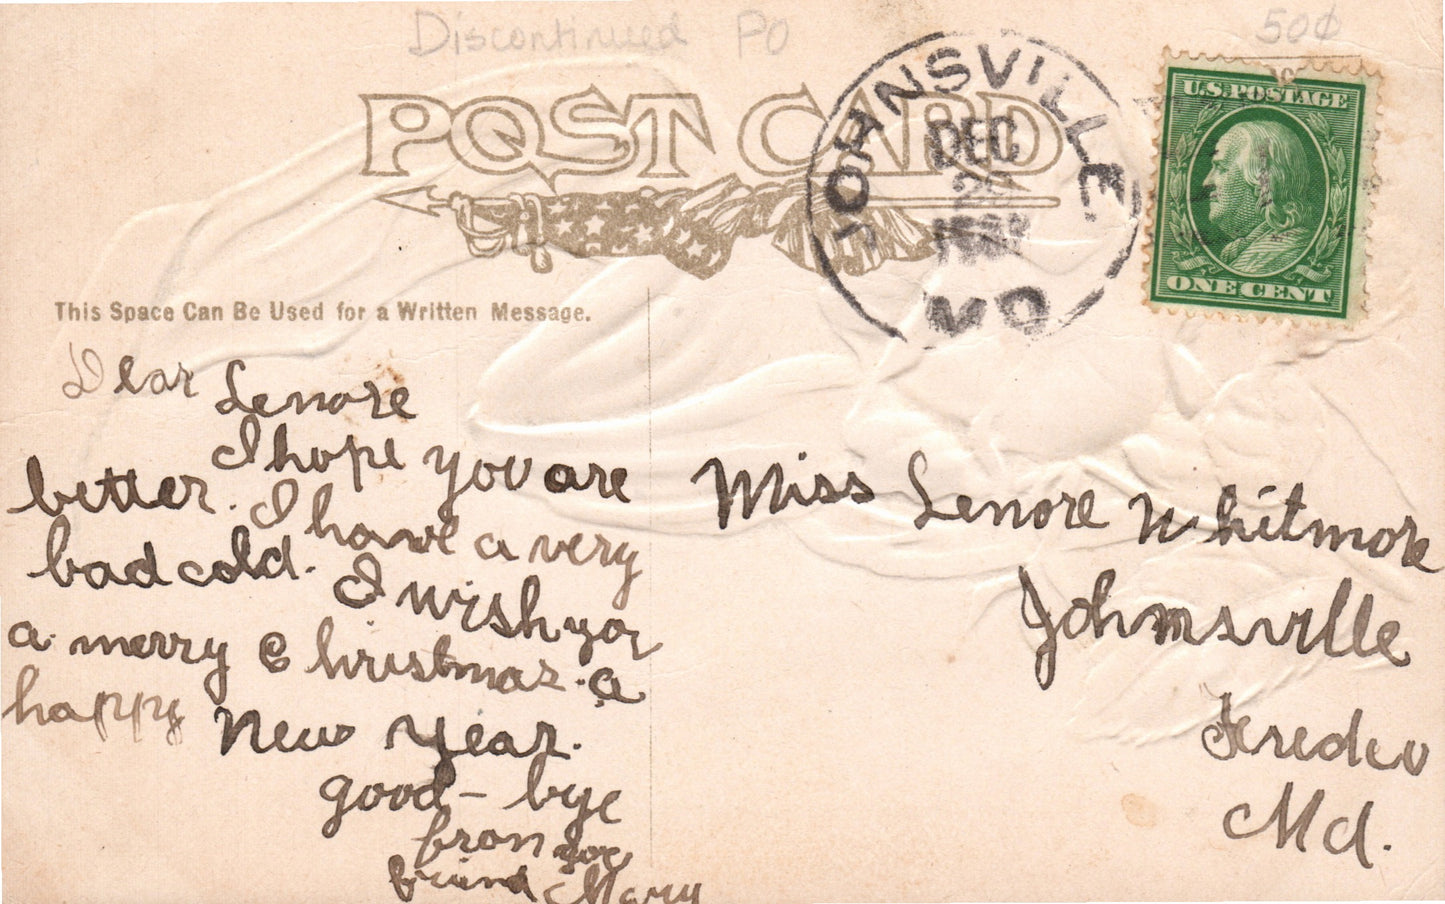 Discontinued PO
50¢
POST CARD
JOHNSVILLE
DEC
MD
U.S. POSTAGE
ONE CENT
This Space Can Be Used for a Written Message.
Dear Lenore
I hope you are
better. I have a very
bad cold. I wish you
a merry Christmas. a
happy New Year.
good-bye
from your
friend Mary
Miss Lenore Whitmore
Johnsville
Md.